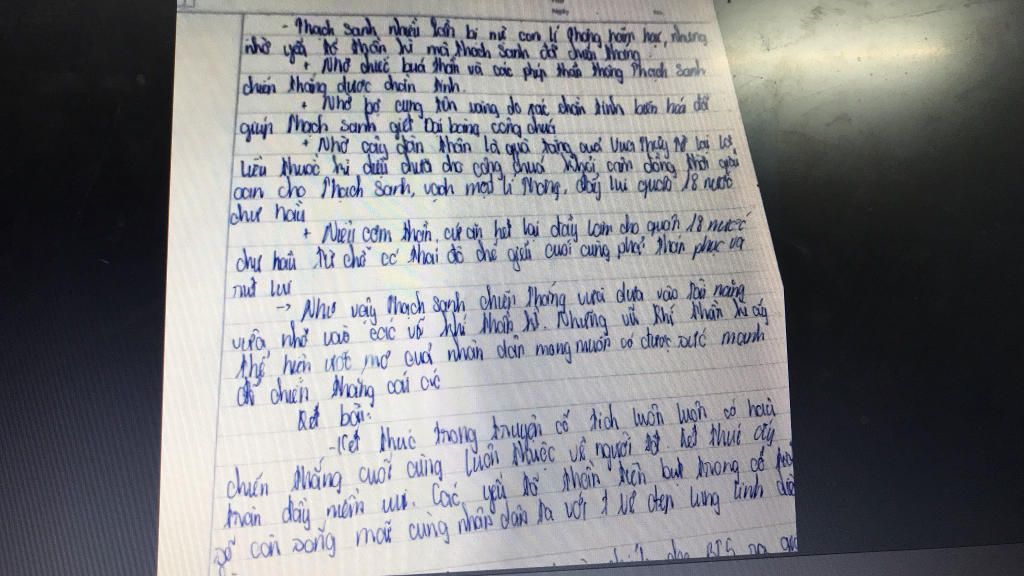 Ngày
- Thạch Sanh nhiều lần bị mẹ con lí thông hãm hại, nhưng
nhờ yếu tố thần kì mà thạch Sanh đã chiến thắng
+ Nhờ chiếc búa thần và các phép thần thông Thạch Sanh
chiến thắng được chằn tinh
+ Nhờ bộ cung tên vàng do xác chằn tinh biến hoá đã
giúp Thạch Sanh giết Đại bàng công chúa
+ Nhờ cây đàn thần là quà tặng của Vua thủy tề lại
liều thuốc kì diệu chữa cho công chúa khỏi câm đồng thời giải
oan cho Thạch Sanh, vạch mặt lí thông, đẩy lui quân 18 nước
chư hầu
+ Niêu cơm thần, cứ ăn hết lại đầy làm cho quân 18 nước
chư hầu từ chỗ có thái độ chế giễu cuối cùng phải thán phục và
rút lui
→ Như vậy Thạch Sanh chiến thắng vừa dựa vào tài năng
vừa nhờ vào các vũ khí thần kì. Những vũ khí thần kì ấy
thể hiện ước mơ của nhân dân mong muốn có được sức mạnh
để chiến thắng cái ác
Kết bài:
- Kết thúc trong truyện cổ tích luôn luôn có hậu
chiến thắng cuối cùng luôn thuộc về người tốt kết thúc ấy
tràn đầy niềm vui. Các yếu tố thần tiên bụt trong cổ
sẽ còn sống mãi cùng nhân dân ta với 1 vẻ đẹp lung linh